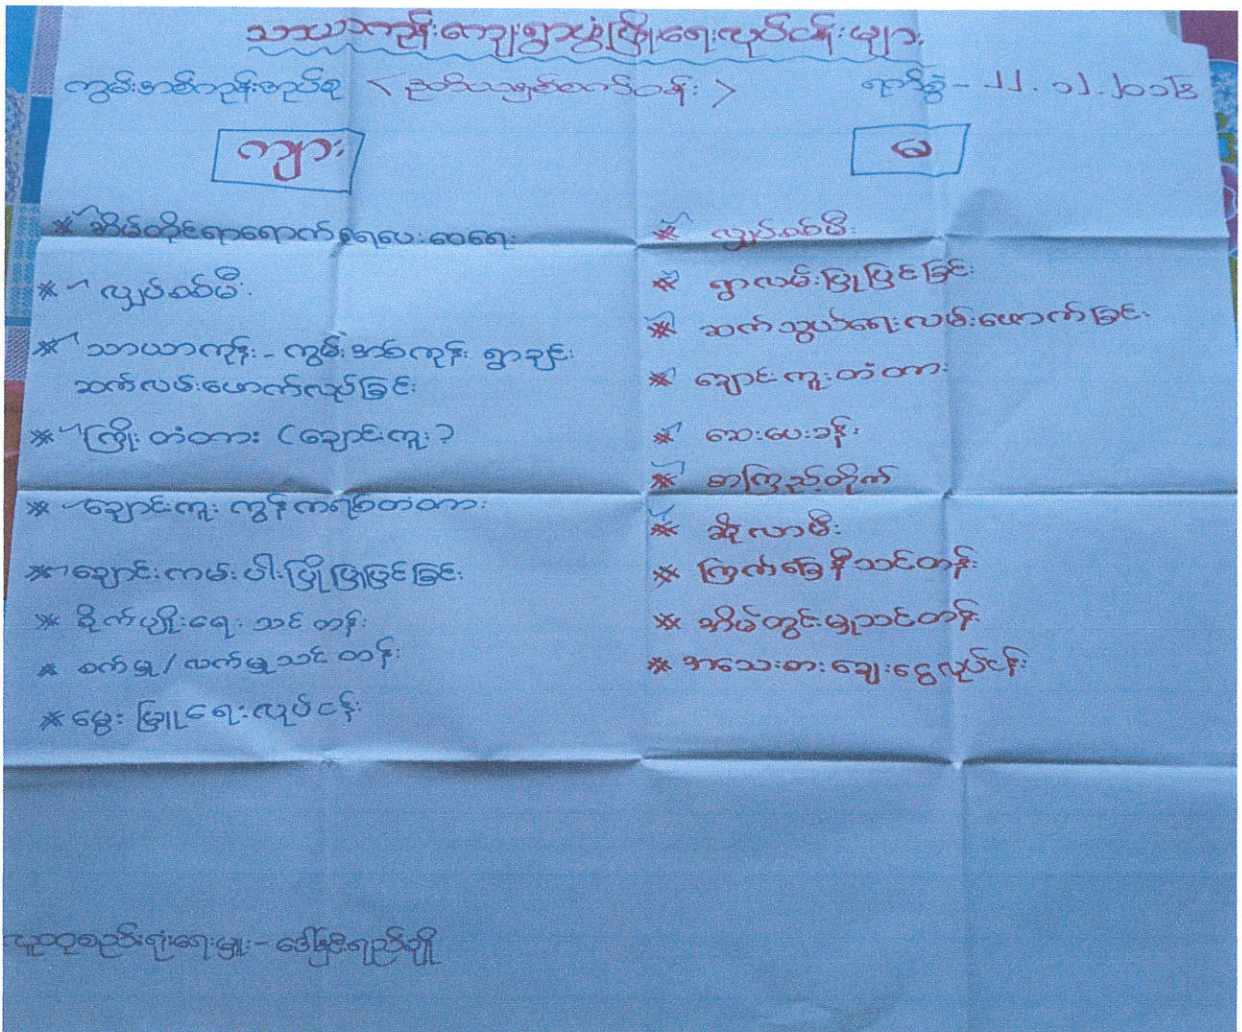 သာယာကုန်းကျေးရွာဖွံ့ဖြိုးရေးလုပ်ငန်းများ
ကွမ်းအစ်ကုန်းအုပ်စု < ဒုတိယနှစ်စက်ဝန်း >
ရက်စွဲ - ၂၂.၁၂.၂၀၁၆
ကျား
မ
* အိမ်တိုင်ရာရောက်ရေပေးဝေရေး
* လျှပ်စစ်မီး
* သာယာကုန်း - ကွမ်းအစ်ကုန်း ရွာချင်း
ဆက်လမ်းဖောက်လုပ်ခြင်း
* ကြိုးတံတား (ချောင်းကူး)
* ချောင်းကူး ကွန်ကရစ်တံတား
* ချောင်းကမ်းပါးပြိုပြုပြင်ခြင်း
* စိုက်ပျိုးရေး သင်တန်း
* စက်မှု/လက်မှုသင်တန်း
* မွေးမြူရေးလုပ်ငန်း
* လျှပ်စစ်မီး
* ရွာလမ်းပြုပြင်ခြင်း
* ဆက်သွယ်ရေးလမ်းဖောက်ခြင်း
* ချောင်းကူးတံတား
* ဆေးပေးခန်း
* စာကြည့်တိုက်
* ဆိုလာမီး
* ကြက်ခြေနီသင်တန်း
* အိမ်တွင်းမှုသင်တန်း
* အသေးစားချေးငွေလုပ်ငန်း
လူထုစည်းရုံးရေးမှူး -